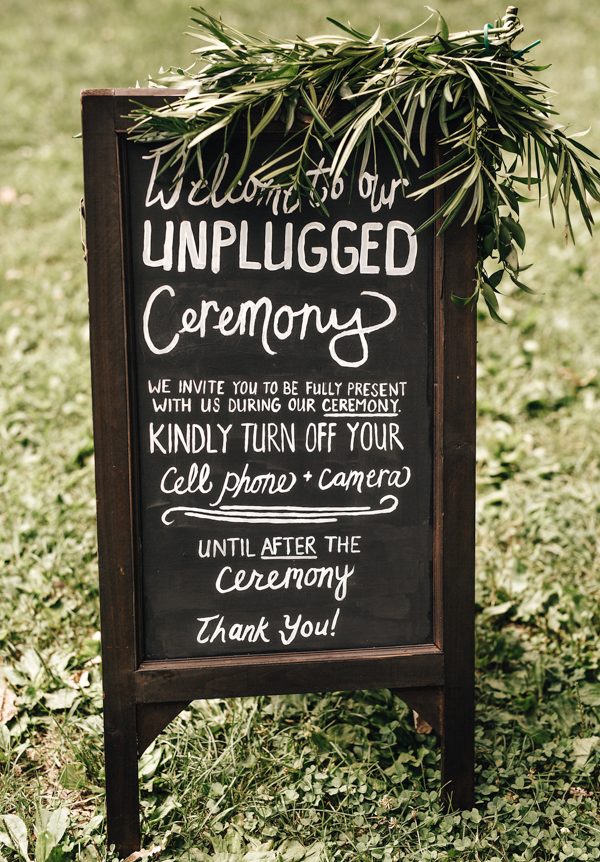 Welcome to our
UNPLUGGED
Ceremony
WE INVITE YOU TO BE FULLY PRESENT
WITH US DURING OUR CEREMONY.
KINDLY TURN OFF YOUR
Cell phone + camera
UNTIL AFTER THE
Ceremony
Thank You!